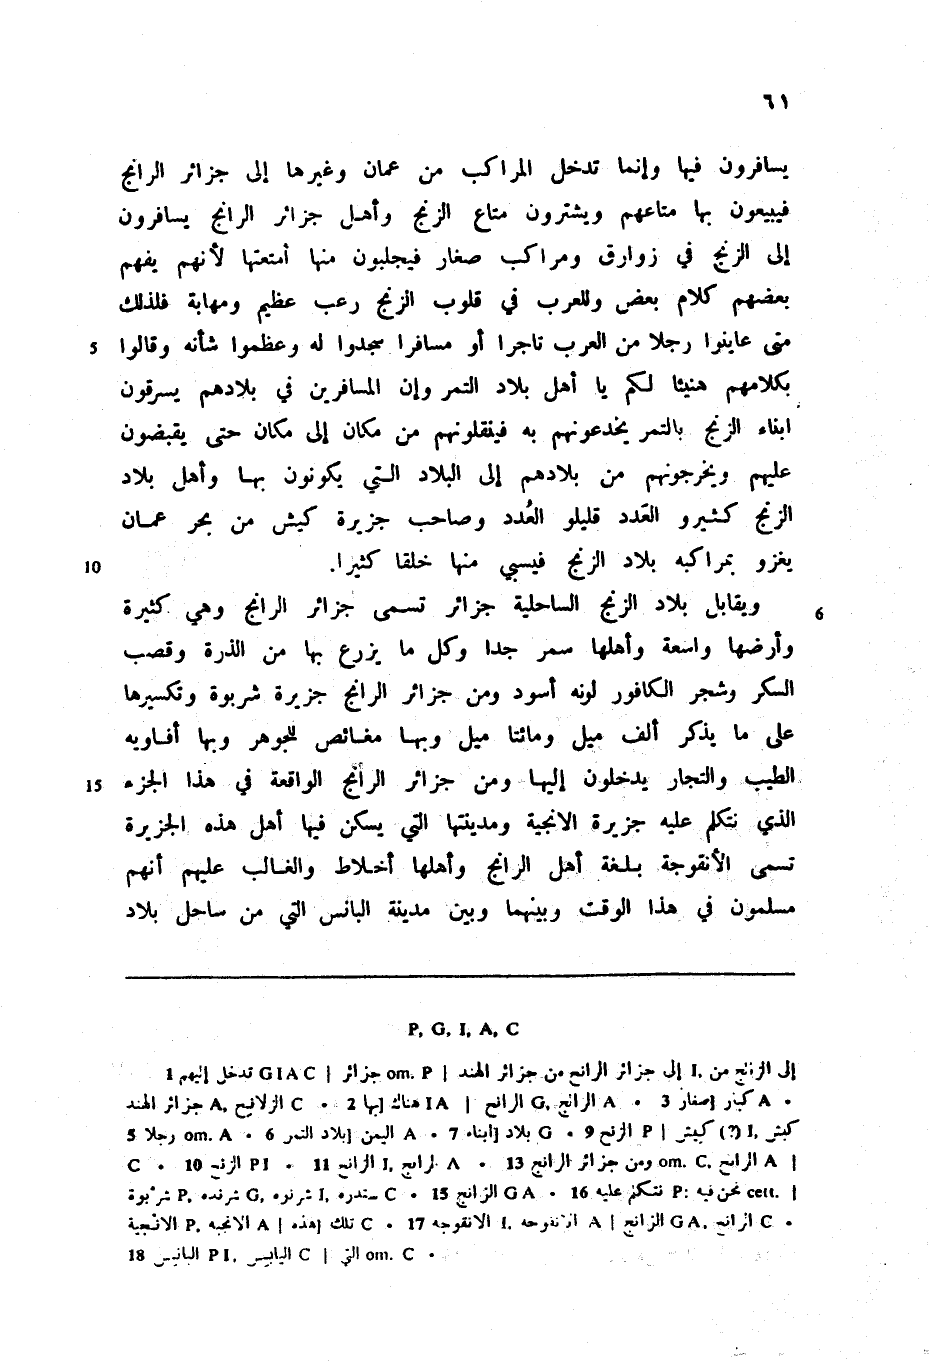 ٦١
يسافرون فيها وإنما تدخل المراكب من عمان وغيرها إلى جزائر الرانج
فيبيعون بها متاعهم ويشترون متاع الزنج وأهل جزائر الرانج يسافرون
إلى الزنج في زوارق ومراكب صغار فيجلبون منها أمتعتها لأنهم يفهم
بعضهم كلام بعض وللعرب في قلوب الزنج رعب عظيم ومهابة فلذلك
متى عاينوا رجلا من العرب تاجرا أو مسافرا سجدوا له وعظموا شأنه وقالوا 5
بكلامهم هنيئا لكم يا أهل بلاد التمر وإن المسافرين في بلادهم يسرقون
ابناء الزنج بالتمر يخدعونهم به فينقلونهم من مكان إلى مكان حتى يقبضون
عليهم ويخرجونهم من بلادهم إلى البلاد التي يكونون بها وأهل بلاد
الزنج كثيرو العَدد قليلو العُدد وصاحب جزيرة كيش من بحر عمان
يغزو بمراكبه بلاد الزنج فيسبي منها خلقا كثيرا. 10
6 ويقابل بلاد الزنج الساحلية جزائر تسمى جزائر الرانج وهي كثيرة
وأرضها واسعة وأهلها سمر جدا وكل ما يزرع بها من الذرة وقصب
السكر وشجر الكافور لونه أسود ومن جزائر الرانج جزيرة شربوة وتكسيرها
على ما يذكر ألف ميل ومائتا ميل وبها مغائص للجوهر وبها أفاويه
الطيب والتجار يدخلون إليها ومن جزائر الرانج الواقعة في هذا الجزء 15
الذي نتكلم عليه جزيرة الانجية ومدينتها التي يسكن فيها أهل هذه الجزيرة
تسمى الأنقوجة بلغة أهل الرانج وأهلها أخلاط والغالب عليهم أنهم
مسلمون في هذا الوقت وبينهما وبين مدينة البانس التي من ساحل بلاد
P, G, I, A, C
1 تدخل إليهم G I A C | جزائر om. P | إلى جزائر الرانج من جزائر الهند I, إلى الزنج من
جزائر الهند A, C • 2 بها] هناك I A | الرانج G, الرانج A • 3 صغار] كبار A •
5 رجلا om. A • 6 بلاد التمر] اليمن A • 7 ابناء] بلاد G • 9 الزنج P | كيش (?) I,
C • 10 P I • 11 الرانج I, A • 13 ومن جزائر الرانج om. C, الرانج A |
G, I, C • 15 الزانج G A • 16 نتكلم عليه P: نحن فيه cett. |
P, A | هذه] تلك C • 17 الانقوجه I, A | الزانج G A, C •
18 البانس P I, C | التي om. C •